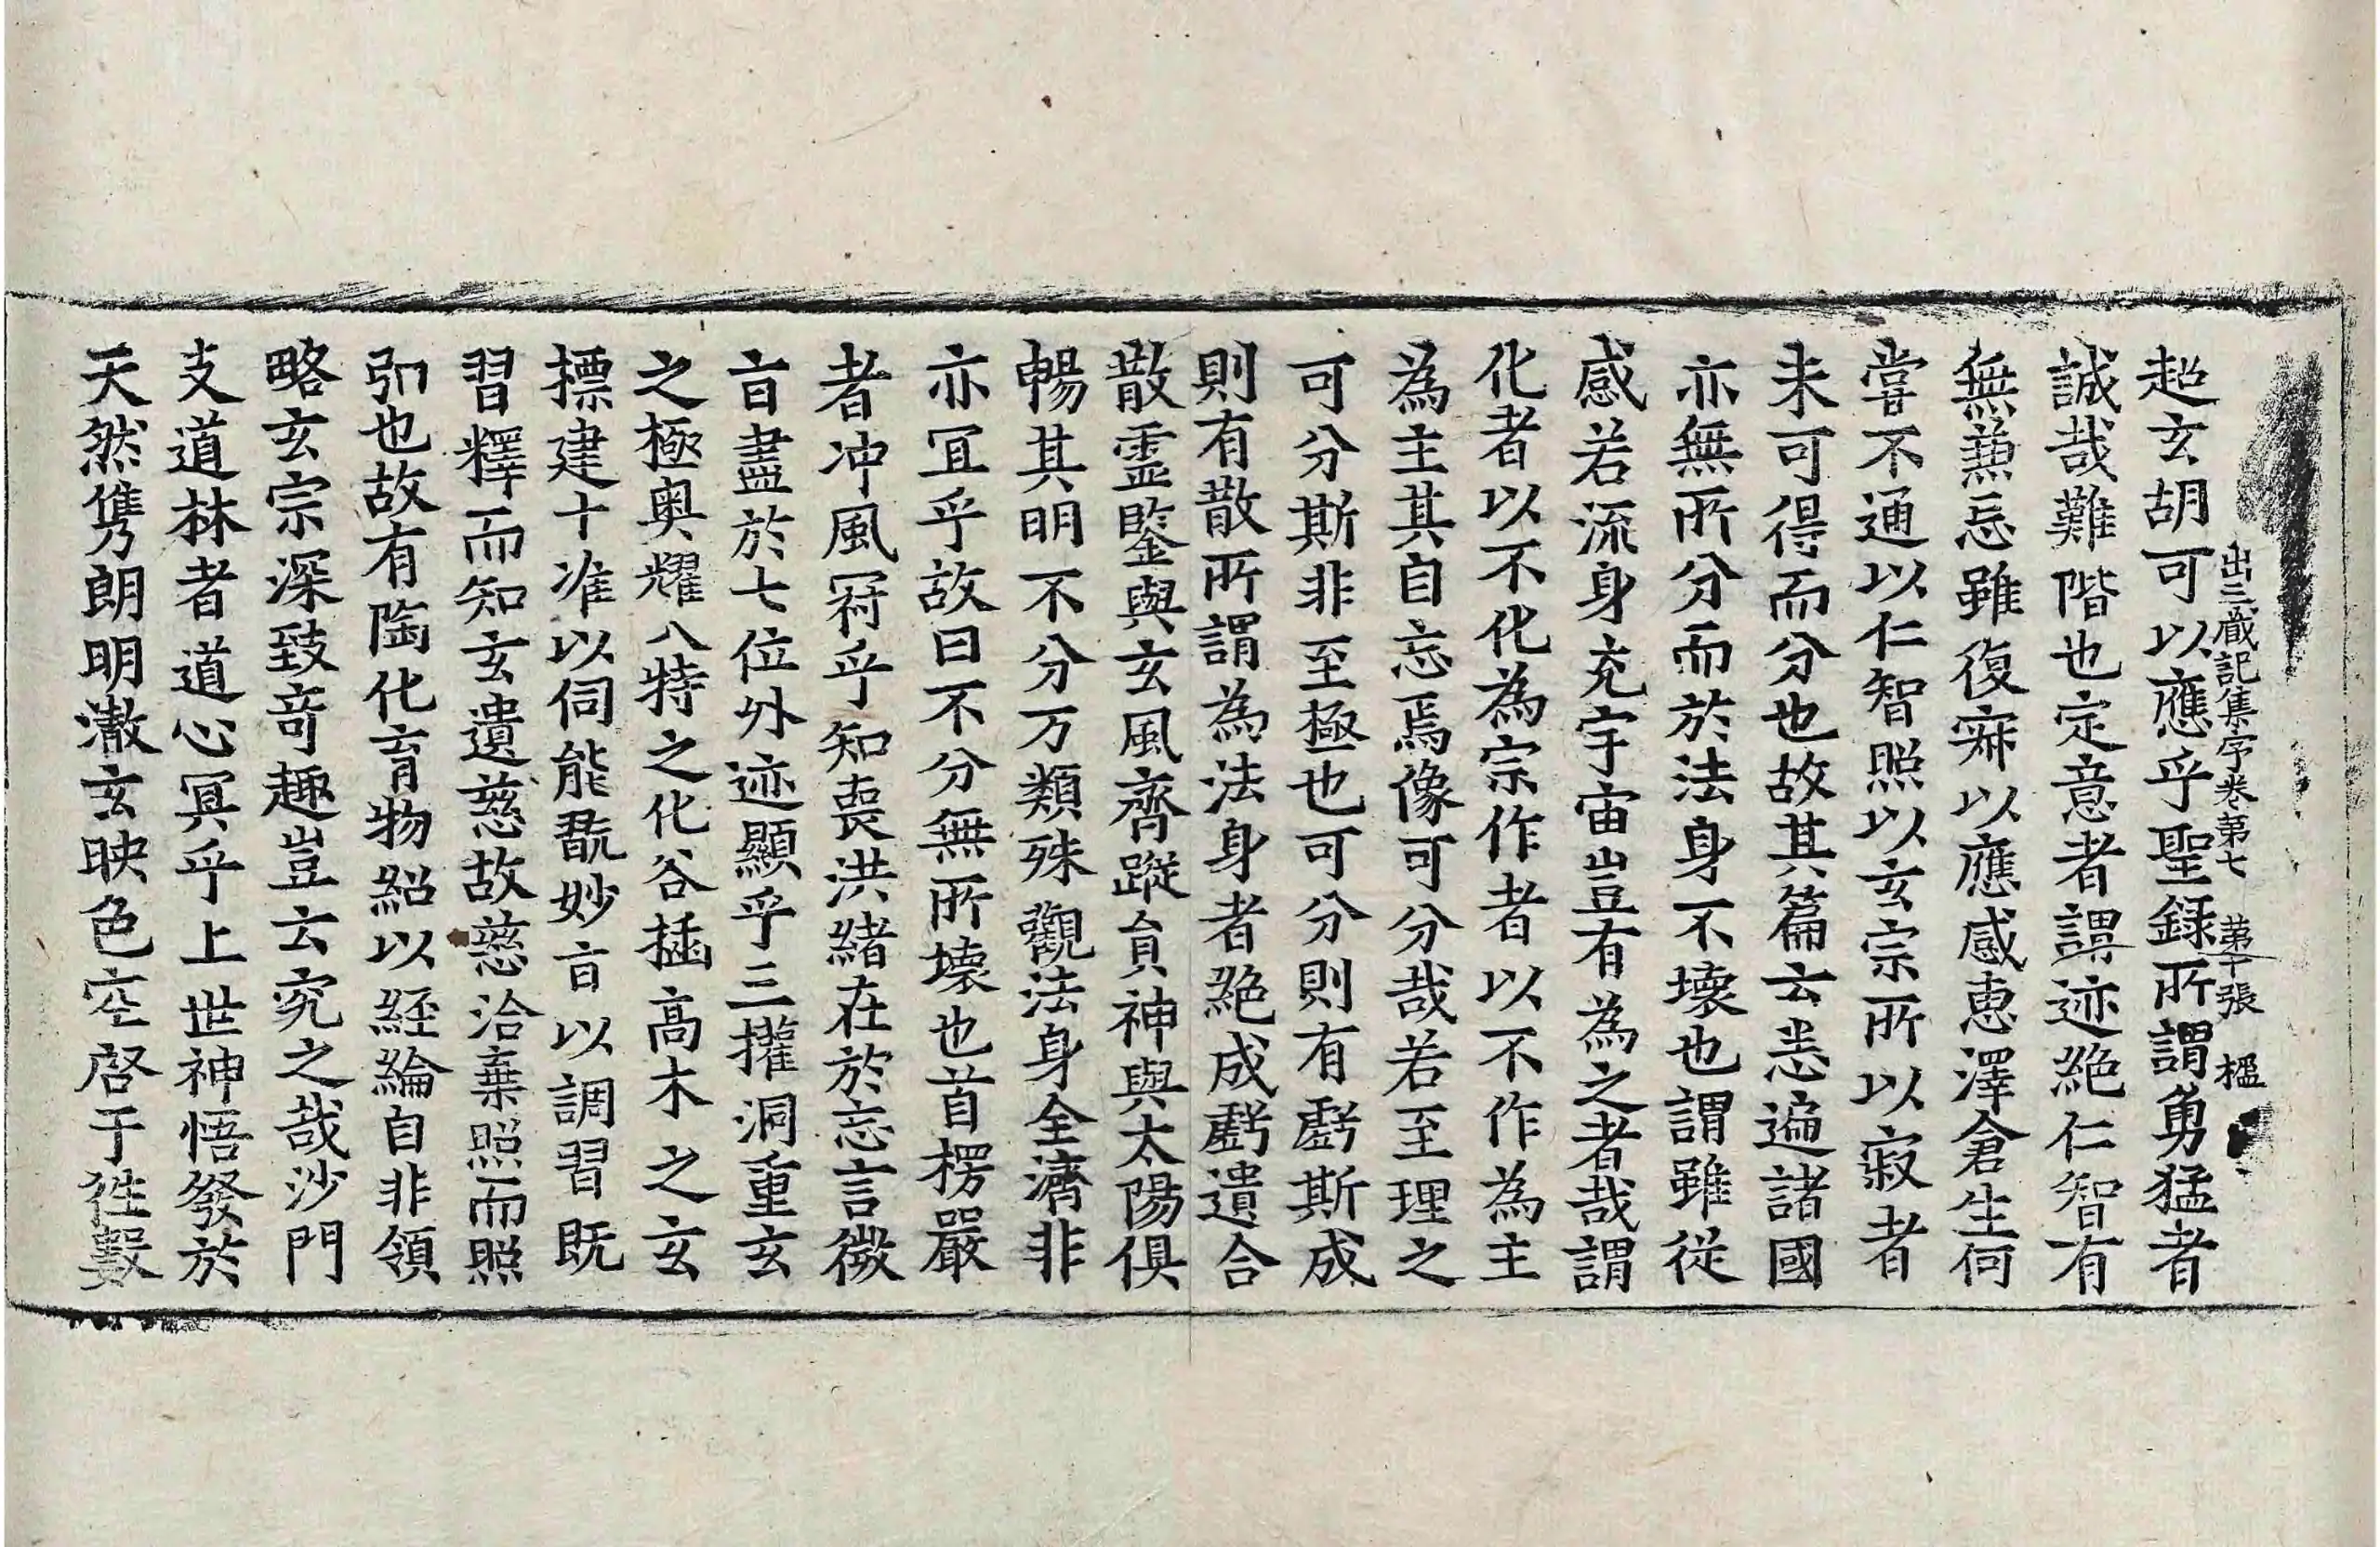 出三藏記集序卷第七 第十張 楹
超玄胡可以應乎聖録所謂勇猛者
誠哉難階也定意者謂迹絶仁智有
無兼忘雖復寂以應感惠澤倉生何
甞不通以仁智照以玄宗所以寂者
未可得而分也故其篇云恙遍諸國
亦無所分而於法身不壞也謂雖從
感若流身充宇宙豈有為之者哉謂
化者以不化為宗作者以不作為主
為主其自忘焉像可分哉若至理之
可分斯非至極也可分則有虧斯成
則有散所謂為法身者絶成虧遺合
散霊鑒與玄風齊蹤負神與太陽俱
暢其明不分万類殊觀法身全濟非
亦冝乎故曰不分無所壞也首楞嚴
者冲風冠乎知喪洪緒在於忘言微
㫖盡於七位外迹顯乎三權洞重玄
之極奥耀八特之化谷插髙木之玄
摽建十准以伺能翫妙㫖以調習既
習釋而知玄遺慈故慈洽棄照而照
弘也故有陶化育物紹以經綸自非領
略玄宗深致竒趣豈云究之哉沙門
支道林者道心冥乎上世神悟發於
天然儁朗明澈玄映色空啓于往數